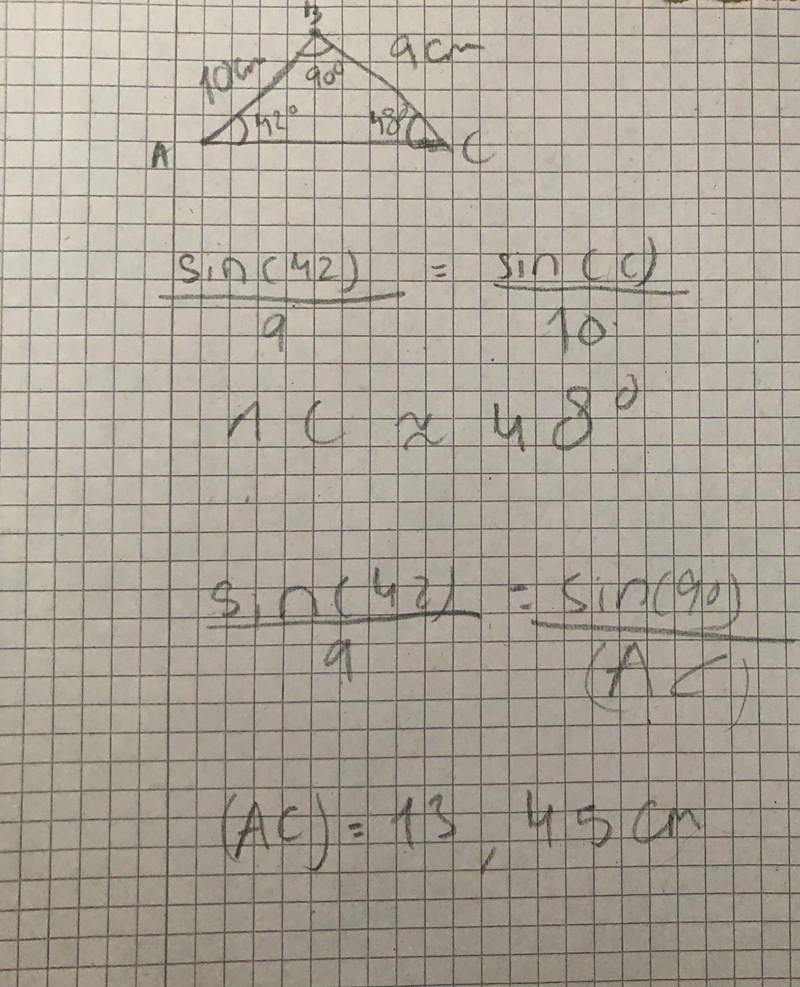 B
10cm 90° 9cm
A 42° 48° C
sin(42) / 9 = sin(C) / 10
1 C ≈ 48°
sin(42) / 9 = sin(90) / (AC)
(AC) = 13,45 cm